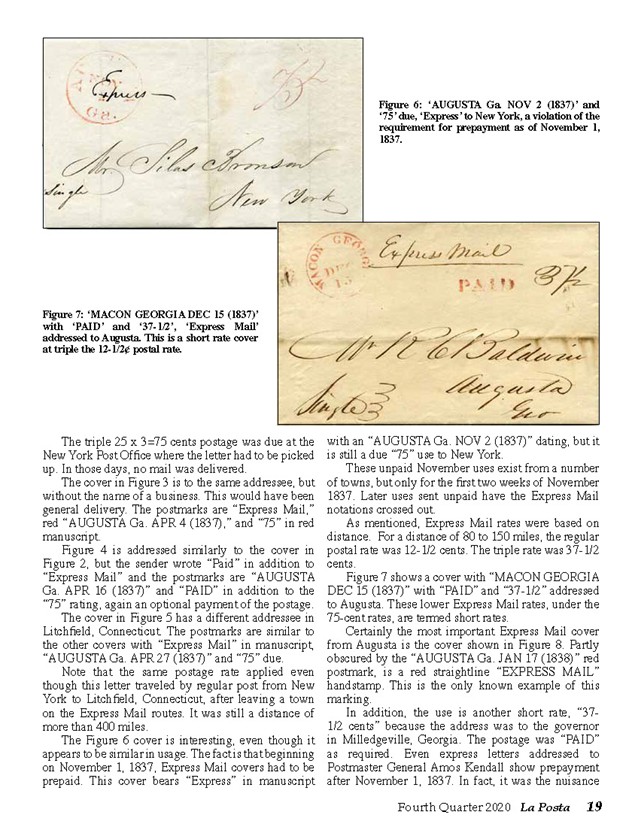 AUGUSTA
Ga.
Express
75
Mr. Silas Bronson
Single
New York
Figure 6: ‘AUGUSTA Ga. NOV 2 (1837)’ and
‘75’ due, ‘Express’ to New York, a violation of the
requirement for prepayment as of November 1,
1837.
MACON GEORGIA
DEC
15
Express Mail
PAID
37½
Mr R C Baldwin
Augusta
Single
Geo
Figure 7: ‘MACON GEORGIA DEC 15 (1837)’
with ‘PAID’ and ‘37-1/2’, ‘Express Mail’
addressed to Augusta. This is a short rate cover
at triple the 12-1/2¢ postal rate.
The triple 25 x 3=75 cents postage was due at the
New York Post Office where the letter had to be picked
up. In those days, no mail was delivered.
The cover in Figure 3 is to the same addressee, but
without the name of a business. This would have been
general delivery. The postmarks are “Express Mail,”
red “AUGUSTA Ga. APR 4 (1837),” and “75” in red
manuscript.
Figure 4 is addressed similarly to the cover in
Figure 2, but the sender wrote “Paid” in addition to
“Express Mail” and the postmarks are “AUGUSTA
Ga. APR 16 (1837)” and “PAID” in addition to the
“75” rating, again an optional payment of the postage.
The cover in Figure 5 has a different addressee in
Litchfield, Connecticut. The postmarks are similar to
the other covers with “Express Mail” in manuscript,
“AUGUSTA Ga. APR 27 (1837)” and “75” due.
Note that the same postage rate applied even
though this letter traveled by regular post from New
York to Litchfield, Connecticut, after leaving a town
on the Express Mail routes. It was still a distance of
more than 400 miles.
The Figure 6 cover is interesting, even though it
appears to be similar in usage. The fact is that beginning
on November 1, 1837, Express Mail covers had to be
prepaid. This cover bears “Express” in manuscript
with an “AUGUSTA Ga. NOV 2 (1837)” dating, but it
is still a due “75” use to New York.
These unpaid November uses exist from a number
of towns, but only for the first two weeks of November
1837. Later uses sent unpaid have the Express Mail
notations crossed out.
As mentioned, Express Mail rates were based on
distance. For a distance of 80 to 150 miles, the regular
postal rate was 12-1/2 cents. The triple rate was 37-1/2
cents.
Figure 7 shows a cover with “MACON GEORGIA
DEC 15 (1837)” with “PAID” and “37-1/2” addressed
to Augusta. These lower Express Mail rates, under the
75-cent rates, are termed short rates.
Certainly the most important Express Mail cover
from Augusta is the cover shown in Figure 8. Partly
obscured by the “AUGUSTA Ga. JAN 17 (1838)” red
postmark, is a red straightline “EXPRESS MAIL”
handstamp. This is the only known example of this
marking.
In addition, the use is another short rate, “37-
1/2 cents” because the address was to the governor
in Milledgeville, Georgia. The postage was “PAID”
as required. Even express letters addressed to
Postmaster General Amos Kendall show prepayment
after November 1, 1837. In fact, it was the nuisance
Fourth Quarter 2020 La Posta 19